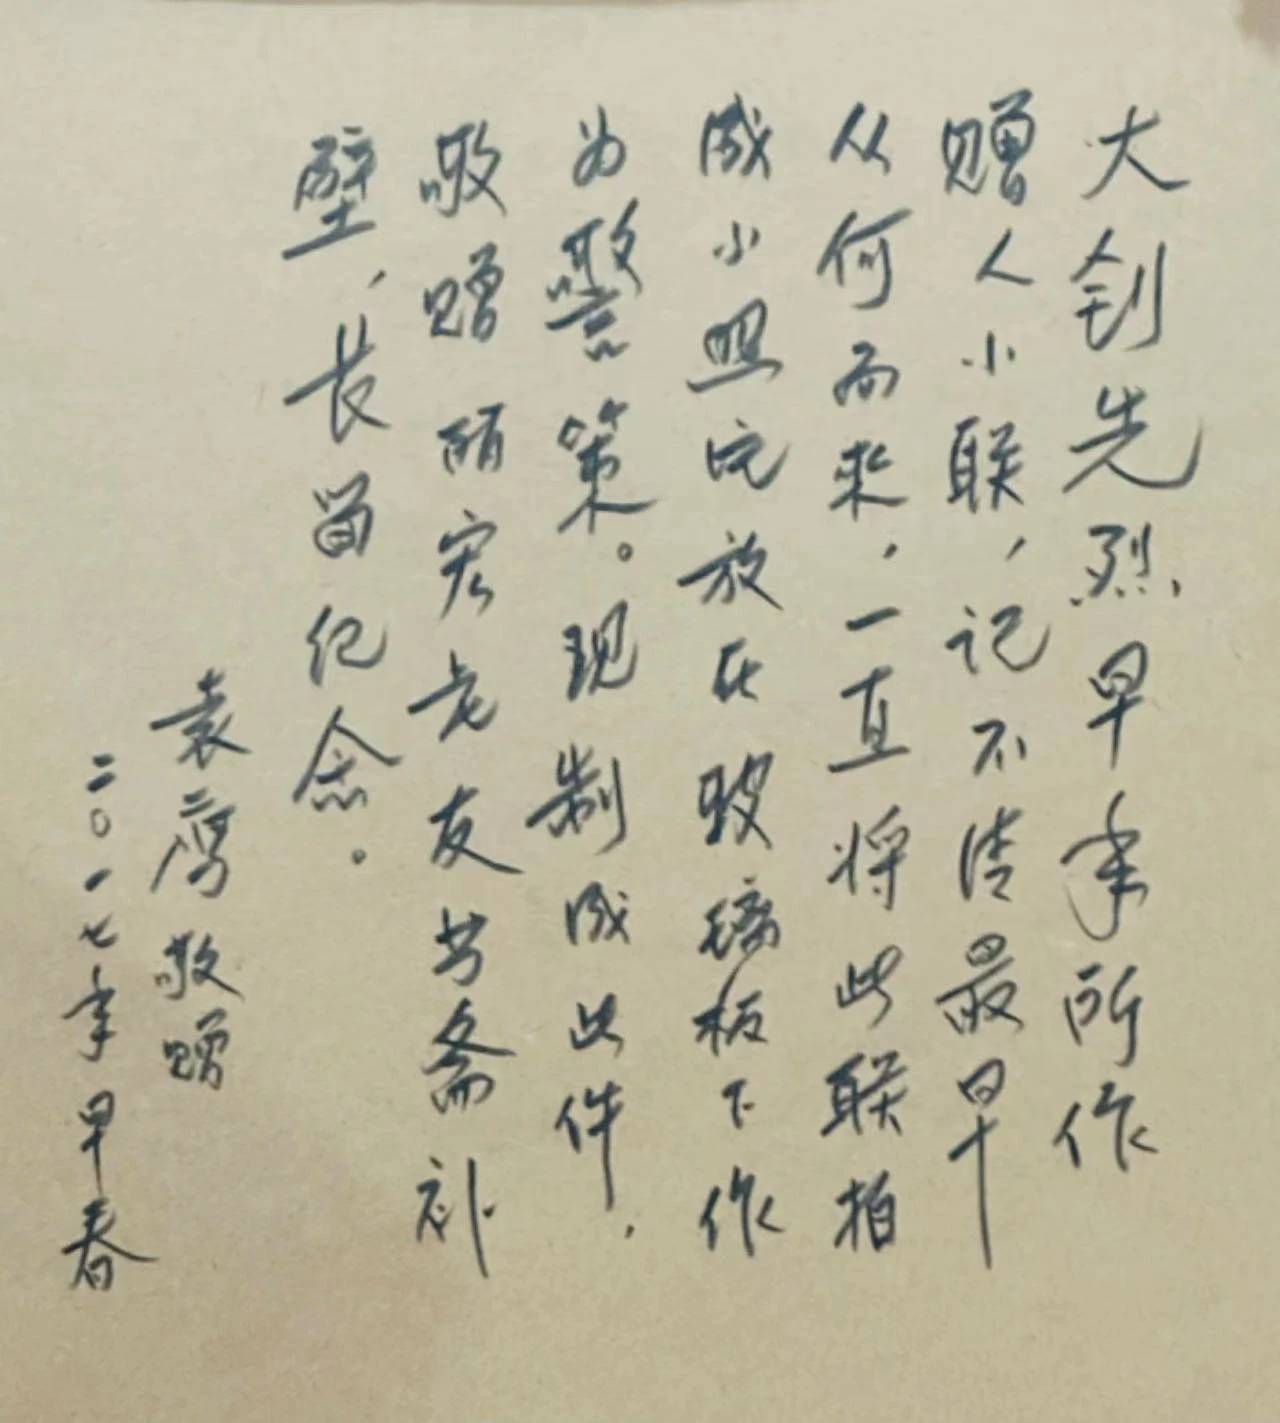 大钊先烈早年所作
赠人小联，记不清最早
从何而来，一直将此联拍
成小照片放在玻璃板下作
为警策。现制成此件，
敬赠 宏老友书斋补
壁，长留纪念。
袁鹰敬赠
二〇一七年早春